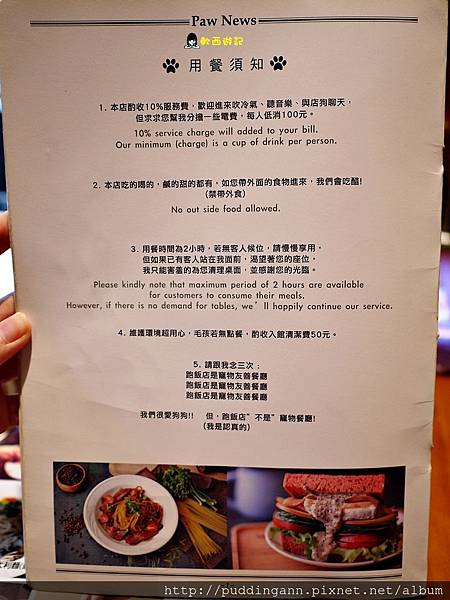 Paw News
軟西遊記
用餐須知
1. 本店酌收10%服務費，歡迎進來吹冷氣、聽音樂、與店狗聊天，
但求求您幫我分擔一些電費，每人低消100元。
10% service charge will added to your bill.
Our minimum (charge) is a cup of drink per person.
2. 本店吃的喝的，鹹的甜的都有，如您帶外面的食物進來，我們會吃醋!
(禁帶外食)
No out side food allowed.
3. 用餐時間為2小時，若無客人候位，請慢慢享用，
但如果已有客人站在我面前，渴望著您的座位，
我只能害羞的為您清理桌面，並感謝您的光臨。
Please kindly note that maximum period of 2 hours are available
for customers to consume their meals.
However, if there is no demand for tables, we'll happily continue our service.
4. 維護環境超用心，毛孩若無點餐，酌收入館清潔費50元。
5. 請跟我念三次：
跑飯店是寵物友善餐廳
跑飯店是寵物友善餐廳
跑飯店是寵物友善餐廳
我們很愛狗狗!! 但，跑飯店"不是"寵物餐廳!
(我是認真的)
http://puddingann.pixnet.net/album